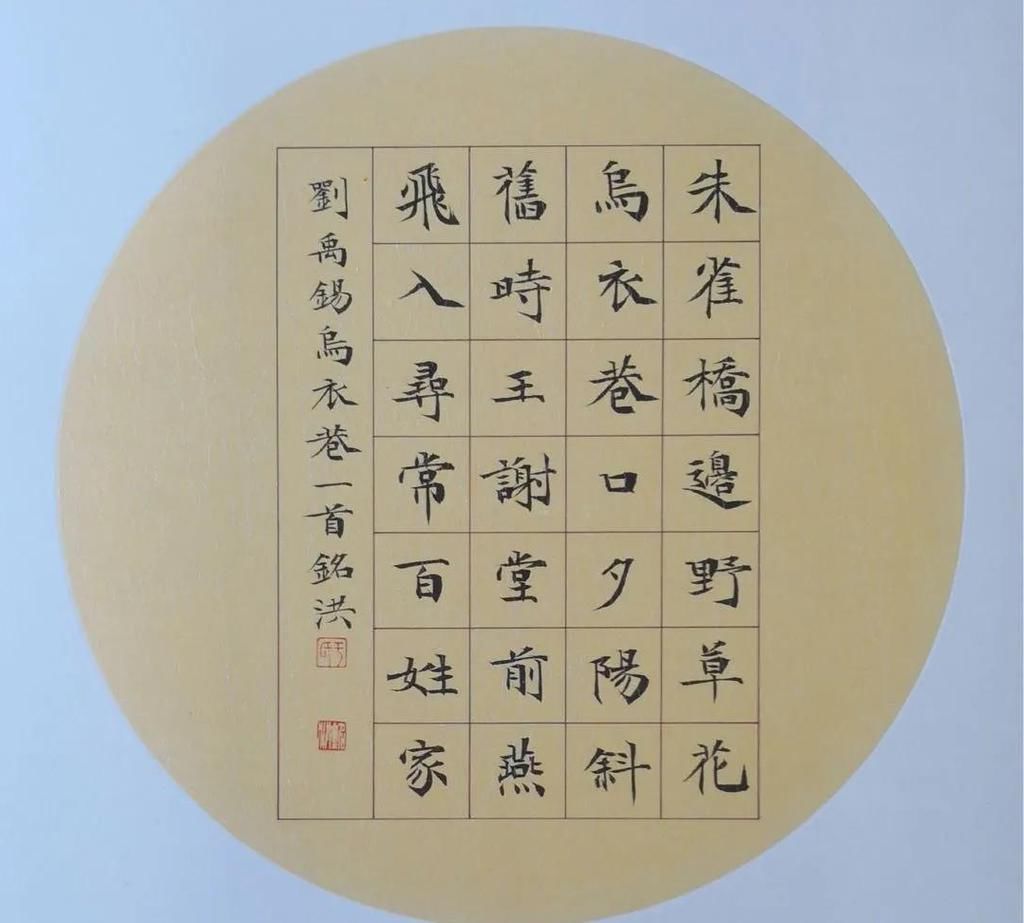 朱雀橋邊野草花
烏衣巷口夕陽斜
舊時王謝堂前燕
飛入尋常百姓家
劉禹錫烏衣巷一首銘洪